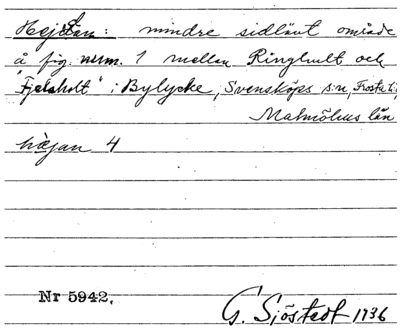 Hejan: mindre sidlänt område
å fig. num. 1 mellan Ringhult och
"Fjelsholt" i Bylycke, Svensköps s:n, Frosta
Malmöhus län
hejan 4
Nr 5942.
G. Sjöstedt 1936